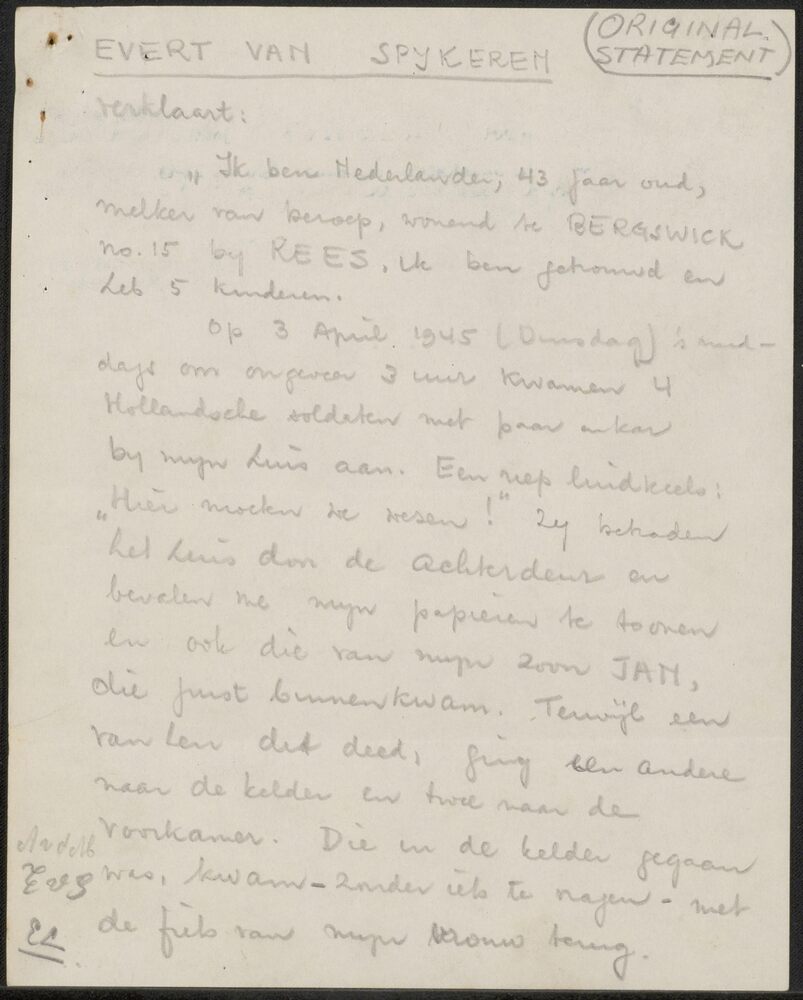 (ORIGINAL STATEMENT)
EVERT VAN SPYKEREN
verklaart:
„Ik ben Nederlander, 43 jaar oud,
melker van beroep, wonend te BERGSWICK
no. 15 by REES, ik ben getrouwd en
heb 5 kinderen.
Op 3 April 1945 (Dinsdag) 's mid-
dags om ongeveer 3 uur kwamen 4
Hollandsche soldaten met paar en kar
by myn huis aan. Een riep luidkeels:
„Hier moeten we wezen!" Zy betraden
het huis door de achterdeur en
bevalen me myn papieren te toonen
en ook die van myn zoon JAN,
die juist binnenkwam. Terwijl een
van hen dit deed, ging een andere
naar de kelder en twee naar de
voorkamer. Die in de kelder gegaan
was, kwam – zonder iets te vragen – met
de fiets van myn vrouw terug.
EvS
EL